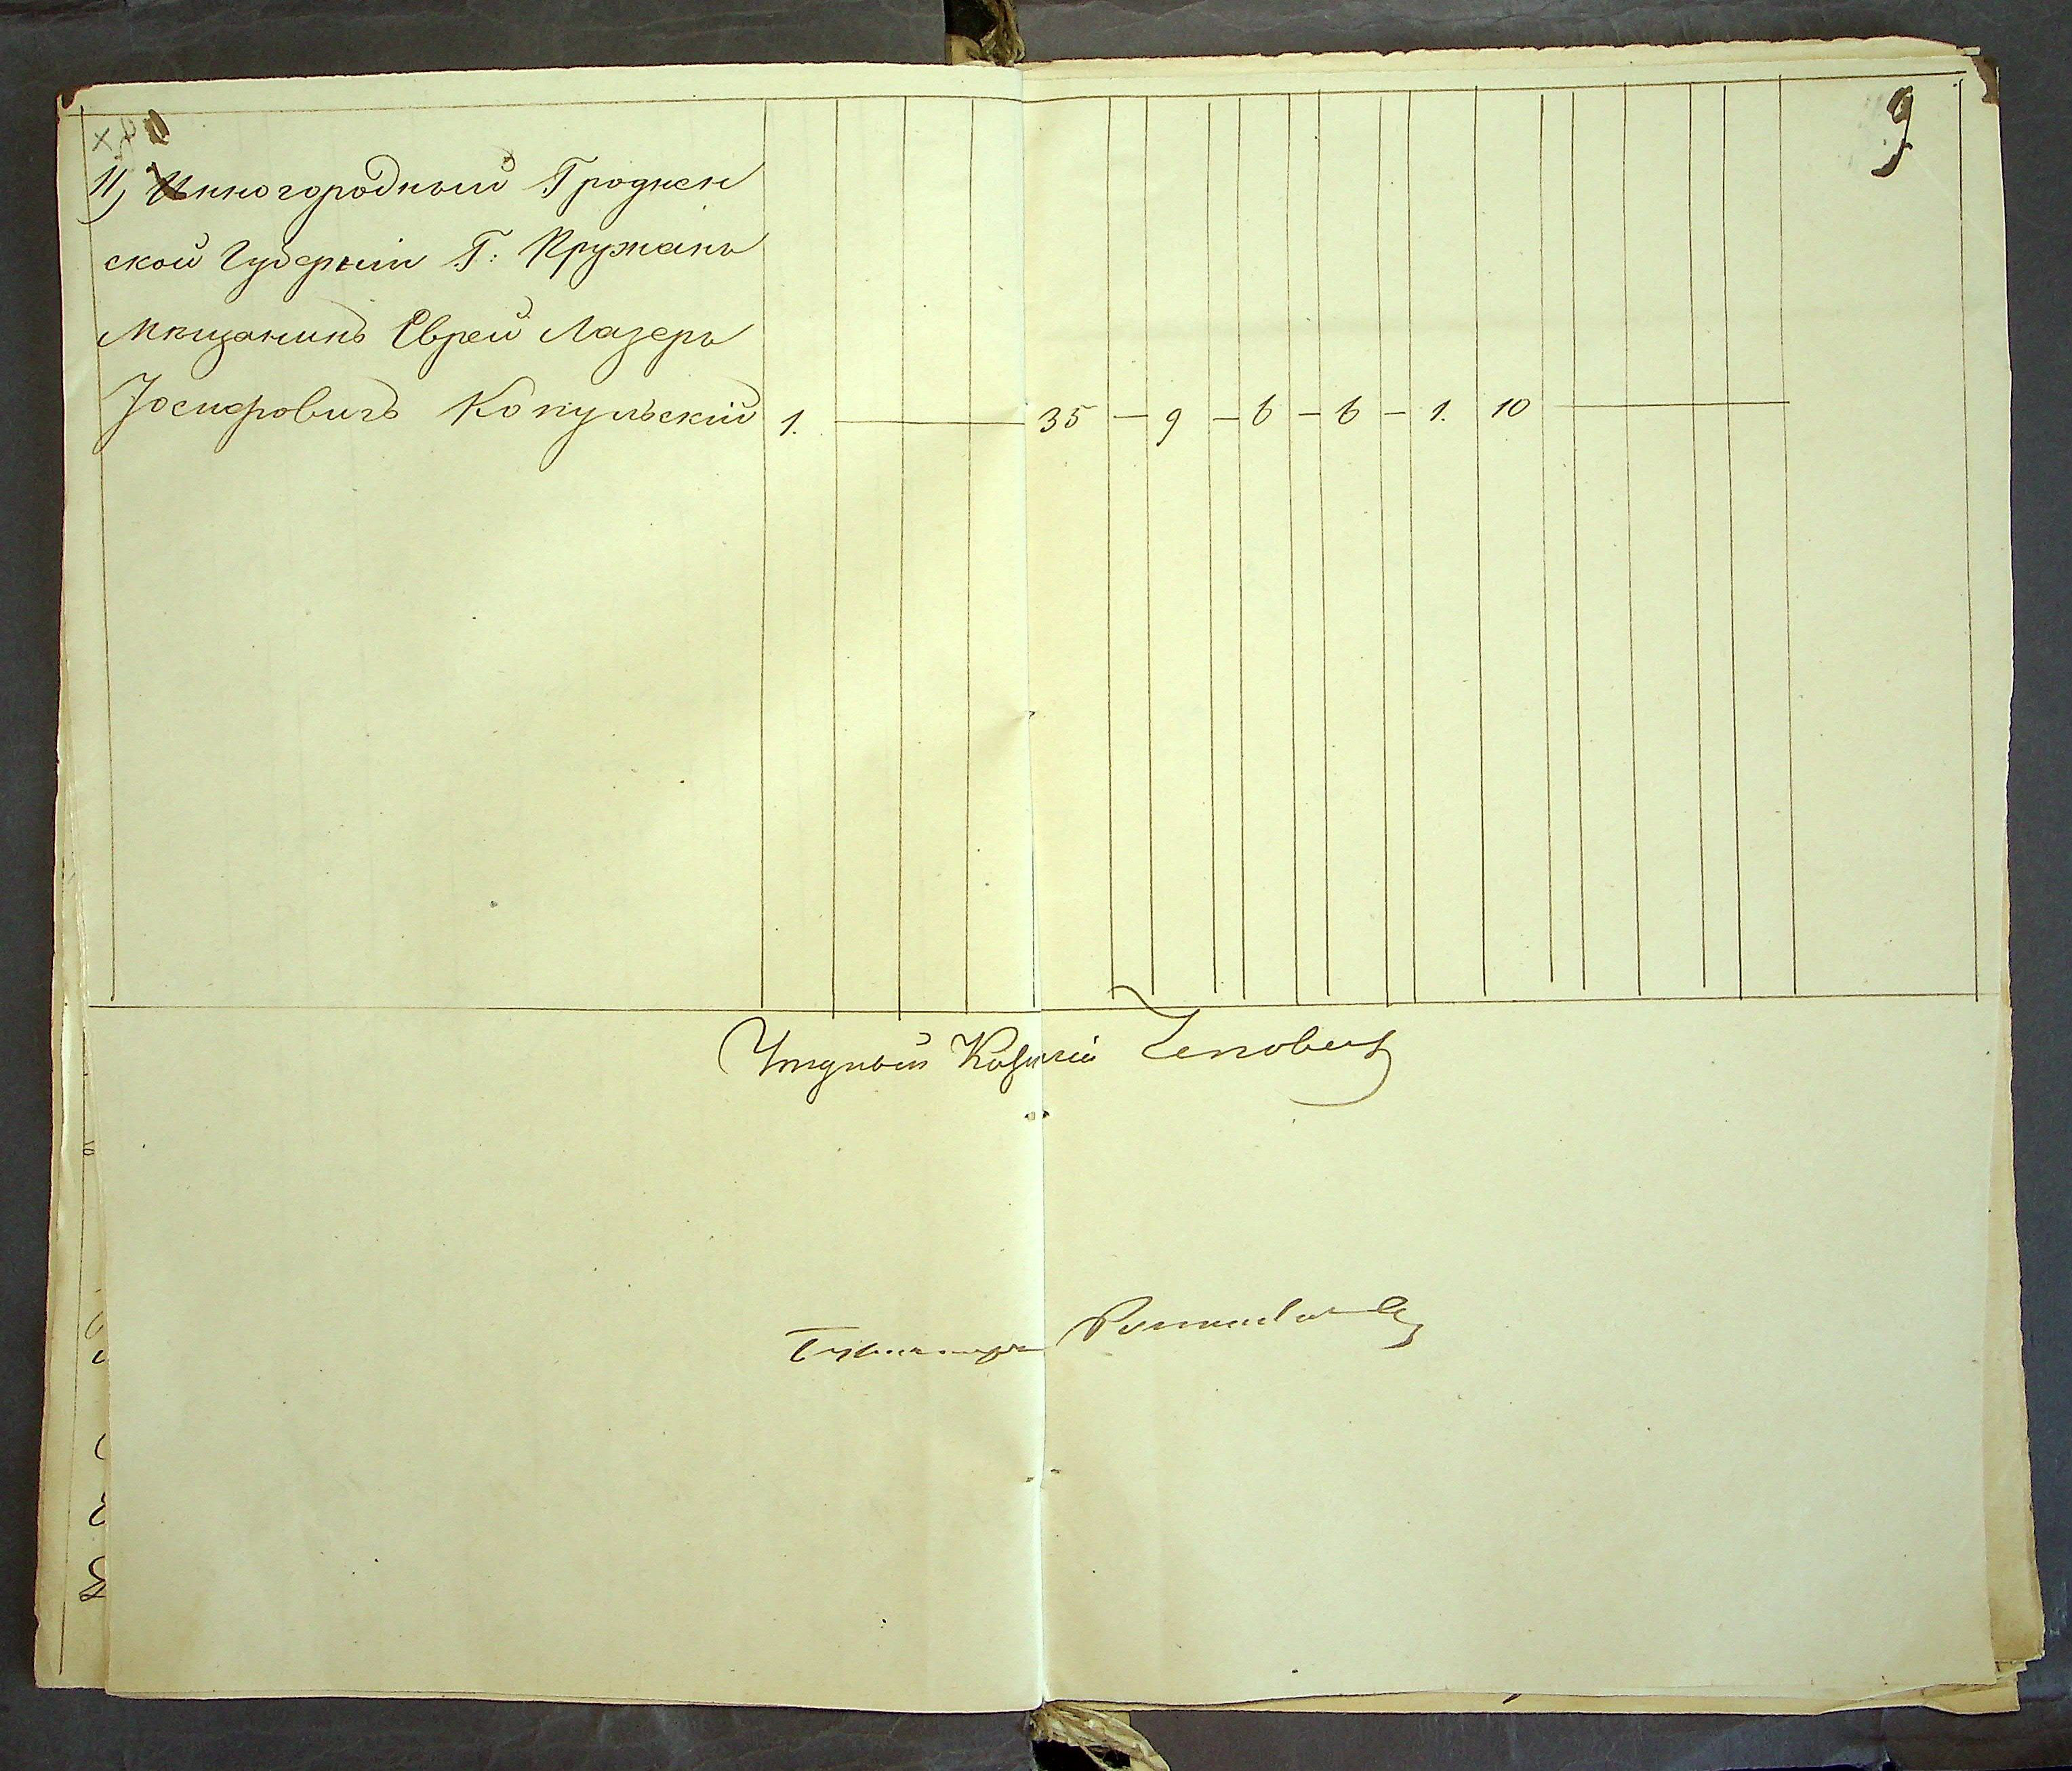 9
11) Инногородный Гроднен
ской Губерніи Г: Пружанъ
Мѣщанинъ Еврей Лазеръ
Іосифовичъ Копульскій 1. — 35 — 9 — 6 — 6 — 1. 10 —
Уѣздный Казначей
Бухгалтеръ